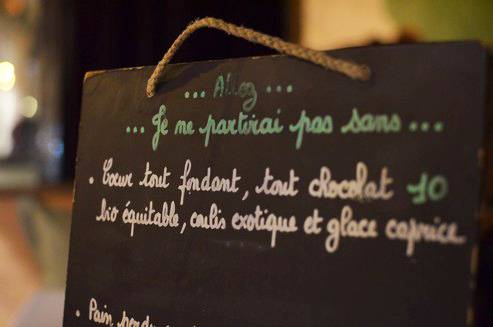 ... Allez ...
... Je ne partirai pas sans ...
. Cœur tout fondant, tout chocolat 10
bio équitable, coulis exotique et glace caprice
. Pain perdu